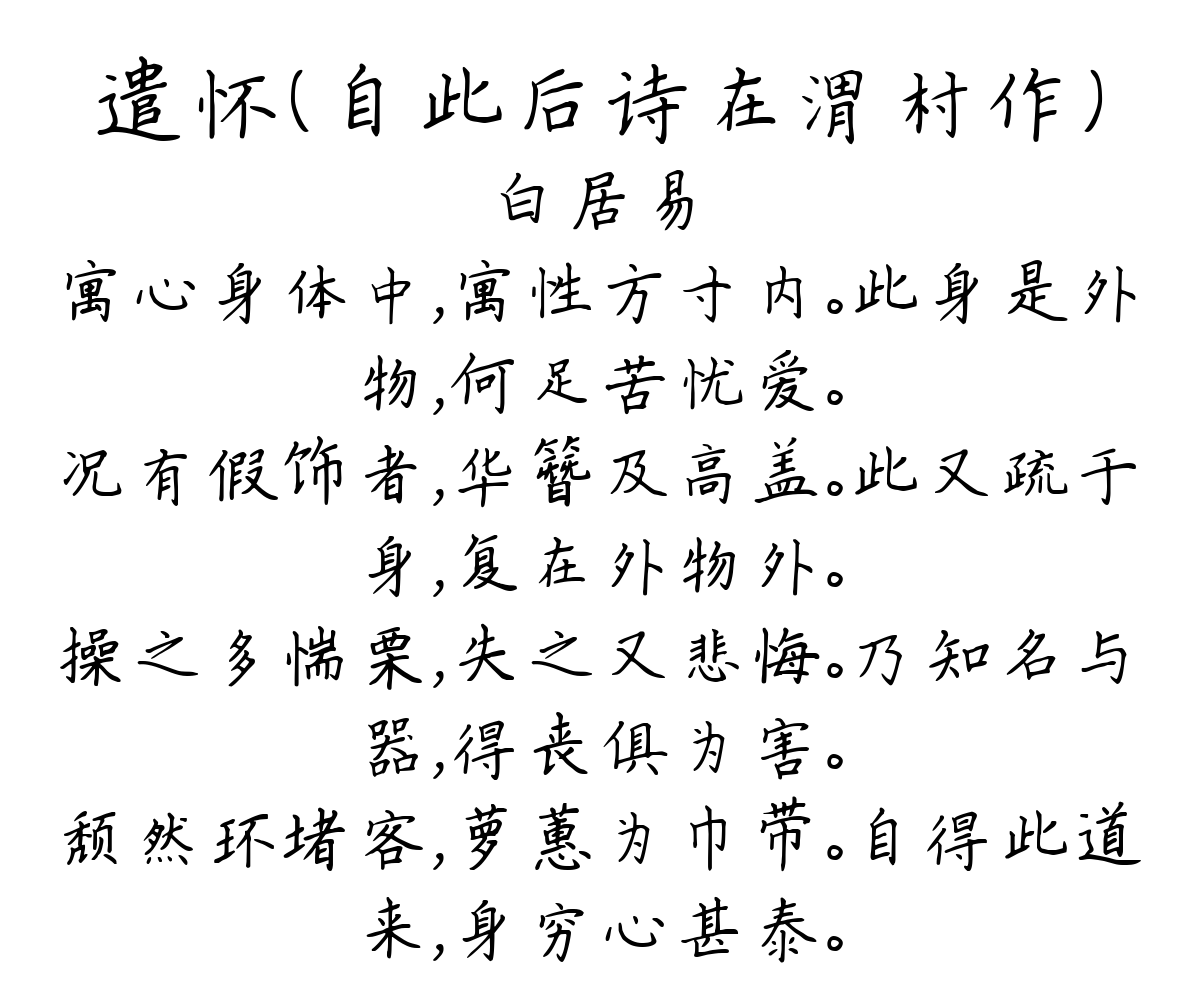 遣怀(自此后诗在渭村作)
白居易
寓心身体中,寓性方寸内。此身是外
物,何足苦忧爱。
况有假饰者,华簪及高盖。此又疏于
身,复在外物外。
操之多惴栗,失之又悲悔。乃知名与
器,得丧俱为害。
颓然环堵客,萝蕙为巾带。自得此道
来,身穷心甚泰。